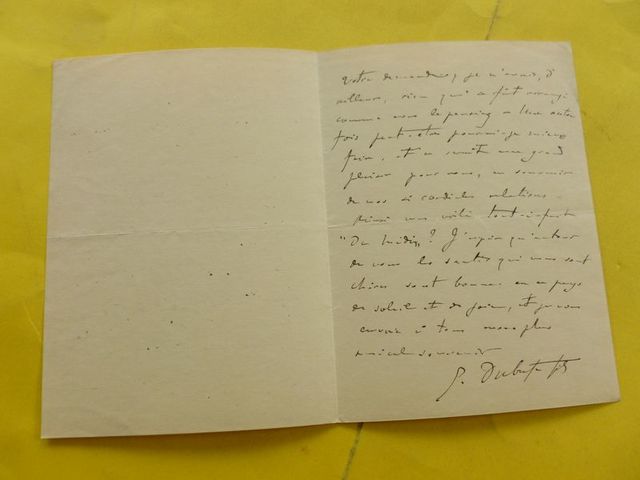 votre demande, je n'avais, d'
ailleurs, rien qui a fût arrangé
comme vous le pensiez. Une autre
fois peut-être pourrai-je mieux
faire, et ce serait un grand
plaisir pour nous, en souvenir
de nos si cordiales relations.
Ainsi vous voilà tout-à-fait
"Du Midi" ? J'espère qu'autour
de vous les santés qui vous sont
chères sont bonnes en ce pays
de soleil et de joie, et je vous
envoie à tous mon plus
amical souvenir
G. Dubufe fs